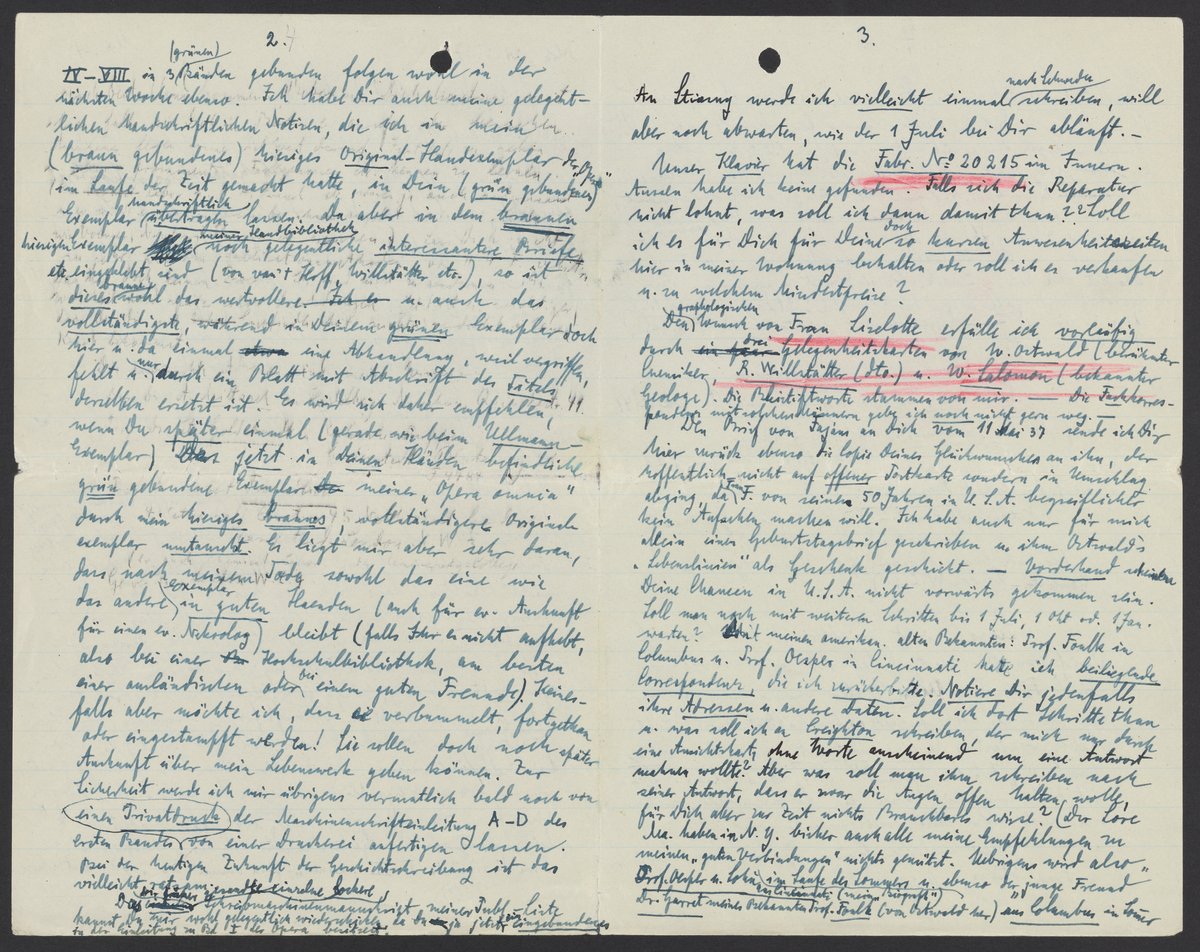 2.
(grünen)
IV–VIII in 3 Bänden gebunden folgen wohl in der
nächsten Woche ebenso. Ich habe Dir auch meine gelegent-
lichen handschriftlichen Notizen, die ich in mein
(braun gebundenes) hiesiges Original-Handexemplar der "Opera"
im Laufe der Zeit gemacht hatte, in Dein (grün gebundenes)
handschriftlich
Exemplar übertragen lassen. Da aber in dem braunen
meiner Handbibliothek
hiesigen Exemplar noch gelegentliche interessante Briefe
etc. eingeklebt sind (von van't Hoff, Willstätter etc.), so ist
braune
dieses wohl das wertvollere. Ich u. auch das
vollständigste, während in Deinem grünen Exemplar doch
hier u. da einmal etwa eine Abhandlung, weil vergriffen,
fehlt u. nur durch ein Blatt mit Abschrift des Titels
derselben ersetzt ist. Es wird sich daher empfehlen,
wenn Du später einmal (gerade wie beim Ullmann-
Exemplar) das jetzt in Deinen Händen befindliche
grün gebundene Exemplar meiner "Opera omnia"
durch mein hiesiges braunes, vollständigere Original-
exemplar umtauscht. Es liegt mir aber sehr daran,
dass nach meinem Tode sowohl das eine wie
das andere Exemplar in guten Haenden (auch für ev. Auskunft
für einen ev. Nekrolog) bleibt (falls Ihr es nicht aufhebt,
also bei einer Hochschulbibliothek, am besten
einer ausländischen oder bei einem guten Freunde). Keines-
falls aber möchte ich, dass es verbummelt, fortgethan
oder eingestampft werden! Sie sollen doch noch später
Auskunft über mein Lebenswerk geben können. Zur
Sicherheit werde ich mir übrigens vermutlich bald noch von
einen Privatdruck der Maschinenschrifteinleitung A–D des
ersten Bandes von einer Druckerei anfertigen lassen.
Bei der heutigen Zukunft der Geschichtschreibung ist das
vielleicht ratsam.
Das früher gesandte einzelne lockere
Schreibmaschinenmanuskript meiner Publ-Liste
kannst Du mir wohl gelegentlich wiederschicken, da Du ja jetzt ein eingebundenes
in der Einleitung zu Bd I des Opera besitzest.
3.
nach Schweden
An Stiasny werde ich vielleicht einmal schreiben, will
aber noch abwarten, wie der 1 Juli bei Dir abläuft. –
Unser Klavier hat die Fabr. No 20215 im Innern.
Aussen habe ich keine gefunden. Falls sich die Reparatur
nicht lohnt, was soll ich dann damit thun?? Soll
doch
ich es für Dich für Deine so kurzen Anwesenheitszeiten
hier in meiner Wohnung behalten oder soll ich es verkaufen
u. zu welchem Mindestpreise?
graphologischen
Den Wunsch von Frau Liselotte erfülle ich vorläufig
durch ein paar drei Gelegenheitskarten von W. Ostwald (berühmter
Chemiker), R. Willstätter (dto.) u. W. Salomon (bekannter
Geologe). Die Bleistiftworte stammen von mir. — Die Fachkorres-
pondenz mit solchen Männern gebe ich noch nicht gern weg. —
Den Brief von Fajans an Dich vom 11 Mai 37 sende ich Dir
hier zurück ebenso die Copie Deines Glückwunsches an ihn, der
hoffentlich nicht auf offener Postkarte sondern in Umschlag
abging, da F. von seinen 50 Jahren in U.S.A. begreiflicher
kein Aufsehen machen will. Ich habe auch nur für mich
allein einen Geburtstagsbrief geschrieben u. ihm Ostwald's
"Lebenslinien" als Geschenk geschickt. — Vorderhand scheinen
Deine Chancen in U.S.A. nicht vorwärts gekommen sein.
Soll man noch mit weiteren Schritten bis 1 Juli, 1 Okt od. 1 Jan.
warten? Mit meinen amerikan. alten Bekannten: Prof. Foulk in
Columbus u. Prof. Oesper in Cincinnati hatte ich beiliegende
Correspondenz, die ich zurückerbitte. Notiere Dir jedenfalls
ihre Adressen u. andere Daten. Soll ich dort Schritte thun
u. was soll ich an Creighton schreiben, der mich nur durch
eine Ansichtskarte ohne Worte anscheinend um eine Antwort
mahnen wollte? Aber was soll man ihm schreiben nach
seiner Antwort, dass er zwar die Augen offen halten wolle,
für Dich aber zur Zeit nichts Brauchbares wisse? (Der Lore
Ma. haben in N.Y. bisher auch alle meine Empfehlungen zu
meinen "guten Verbindungen" nichts genützt. Uebrigens wird also
Prof. Oesper u. Sohn im Laufe des Sommers u. ebenso der "junge Freund"
Dr. Garret meines Bekannten Prof. Foulk (von Ostwald her) aus Columbus im Sommer